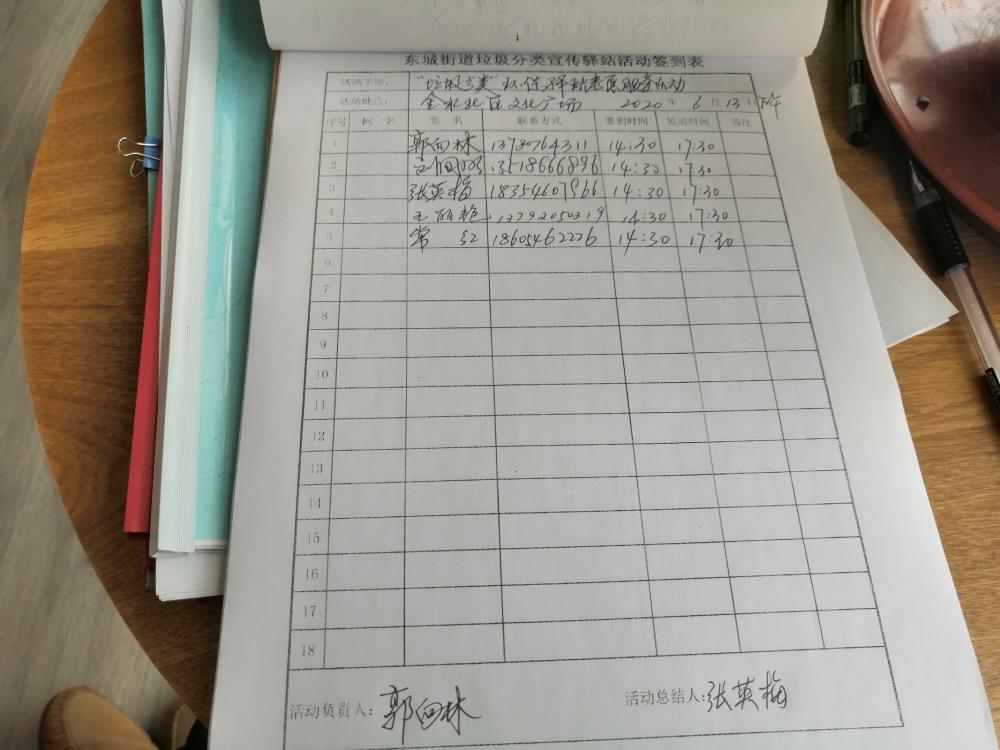 东城街道垃圾分类宣传驿站活动签到表
活动主题: "垃圾分类"宣传驿站志愿服务活动
活动地点: 金水北区文化广场 2020年6月13日 下午
序号 树 名 签 名 联系方式 签到时间 签退时间 备注
1 郭向林 13780764311 14:30 17:30
2 13518666896 14:30 17:30
3 张英梅 18354607966 14:30 17:30
4 王丽艳 13792050219 14:30 17:30
5 常 红 18605462226 14:30 17:30
6
7
8
9
10
11
12
13
14
15
16
17
18
活动负责人: 郭向林 活动总结人: 张英梅